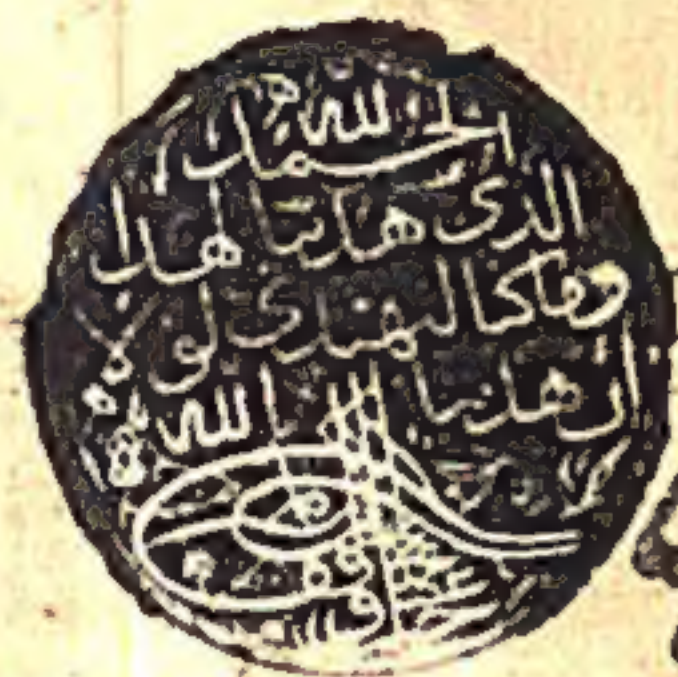 الحمد لله
الذى هدينا لهذا
وما كنا لنهتدى لولا
ان هدينا الله